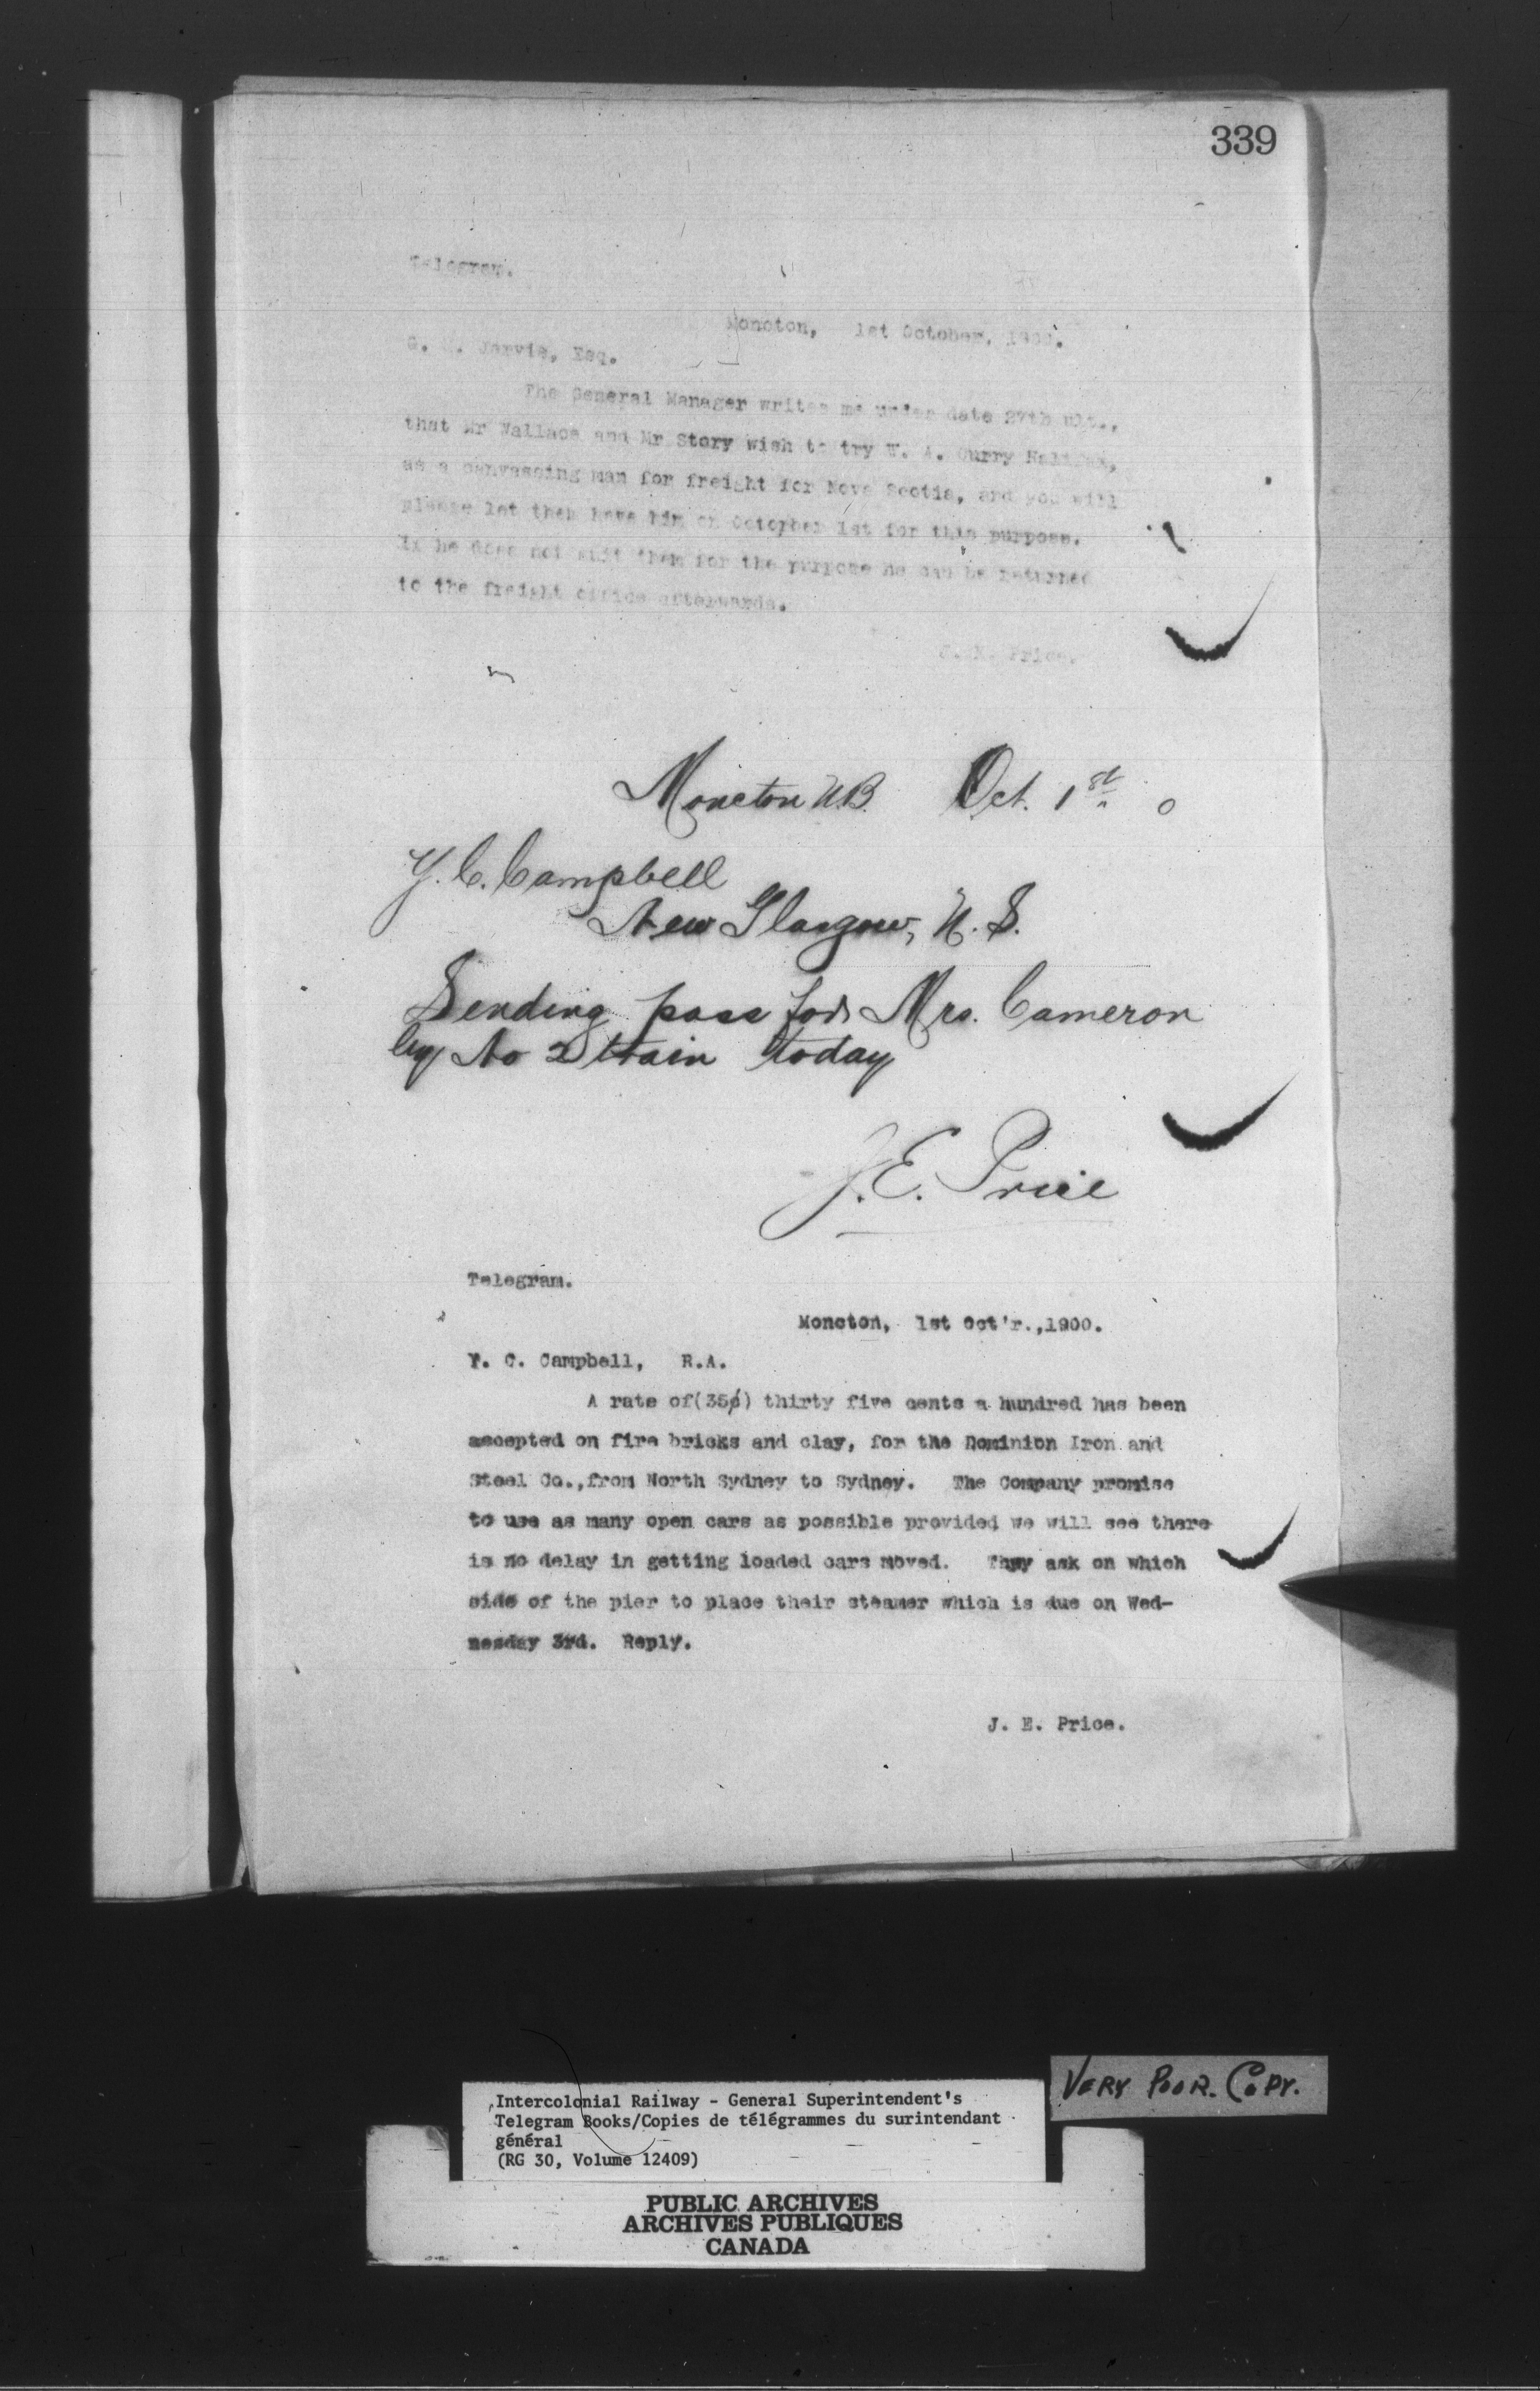 339
Telegram.
Moncton, 1st October, 1900.
G. Jarvis, Esq.
The General Manager writes me under date 27th ult.,
that Mr Wallace and Mr Story wish to try W. A. Curry Halifax,
as a canvassing man for freight for Nova Scotia, and you will
please let them have him on October 1st for this purpose.
If he does not suit them for the purpose he can be returned
to the freight office afterwards.
J. E. Price.
Moncton N.B. Oct. 1st 0
Y. C. Campbell
New Glasgow, N. S.
Sending pass for Mrs. Cameron
by No 2 train today
J. E. Price
Telegram.
Moncton, 1st Oct'r.,1900.
Y. C. Campbell, R.A.
A rate of(35¢) thirty five cents a hundred has been
accepted on fire bricks and clay, for the Dominion Iron and
Steel Co.,from North Sydney to Sydney. The Company promise
to use as many open cars as possible provided we will see there
is no delay in getting loaded cars moved. They ask on which
side of the pier to place their steamer which is due on Wed-
nesday 3rd. Reply.
J. E. Price.
VERY POOR. COPY.
Intercolonial Railway - General Superintendent's
Telegram Books/Copies de télégrammes du surintendant
général
(RG 30, Volume 12409)
PUBLIC ARCHIVES
ARCHIVES PUBLIQUES
CANADA